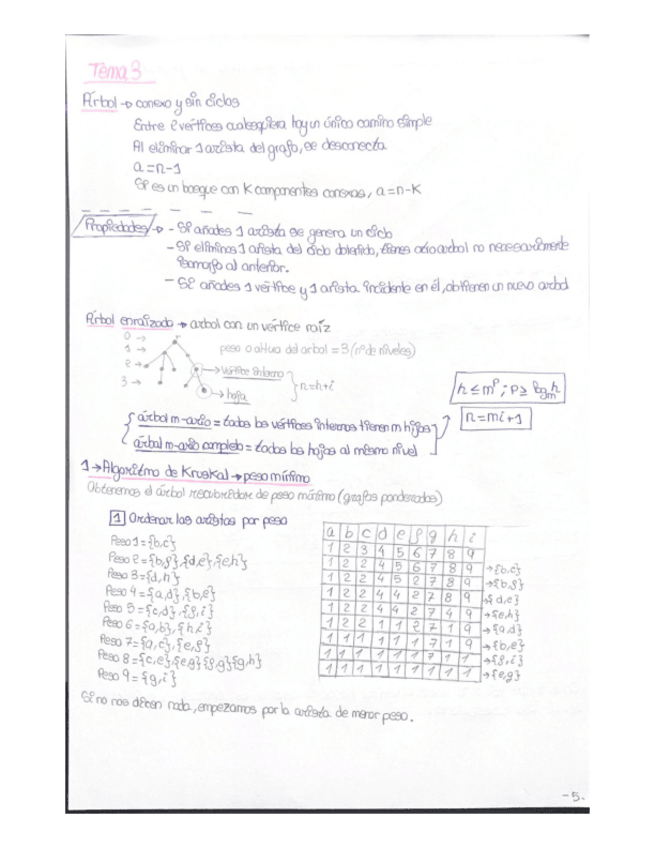 Tema 3
Árbol → conexo y sin ciclos
Entre 2 vértices cualesquiera hay un único camino simple
Al eliminar 1 arista del grafo, se desconecta
a = n-1
Si es un bosque con K componentes conexas, a = n-K
Propiedades → - Si añades 1 arista se genera un ciclo
- Si eliminas 1 arista del ciclo obtenido, tienes otro arbol no necesariamente
isomorfo al anterior.
- Si añades 1 vértice y 1 arista incidente en él, obtienen un nuevo arbol
Árbol enraizado → arbol con un vértice raíz
0 →
1 →
2 →
3 →
r
peso o altura del arbol = 3 (nº de niveles)
→ vértice interno
→ hoja
n = h+i
h ≤ mᵖ ; p ≥ log_m h
n = mi+1
árbol m-ario = todos los vértices internos tienen m hijos
árbol m-ario completo = todos las hojas al mismo nivel
1 → Algoritmo de Kruskal → peso mínimo
Obtenemos el árbol recubridor de peso mínimo (grafos ponderados)
1 Ordenar las aristas por peso
Peso 1 = {b,c}
Peso 2 = {b,g}, {d,e}, {e,h}
Peso 3 = {d,h}
Peso 4 = {a,d}, {b,e}
Peso 5 = {c,d}, {g,i}
Peso 6 = {a,b}, {h,i}
Peso 7 = {a,c}, {e,g}
Peso 8 = {c,e}, {e,g} {g,g} {g,h}
Peso 9 = {g,i}
a b c d e f g h i
1 2 3 4 5 6 7 8 9
1 2 2 4 5 6 7 8 9 → {b,c}
1 2 2 4 5 2 7 8 9 → {b,g}
1 2 2 4 4 2 7 8 9 → {d,e}
1 2 2 4 4 2 7 4 9 → {e,h}
1 2 2 1 1 2 7 1 9 → {a,d}
1 1 1 1 1 1 7 1 9 → {b,e}
1 1 1 1 1 1 7 1 1 → {g,i}
1 1 1 1 1 1 1 1 1 → {e,g}
Si no nos dicen nada, empezamos por la arista de menor peso.
- 5 -